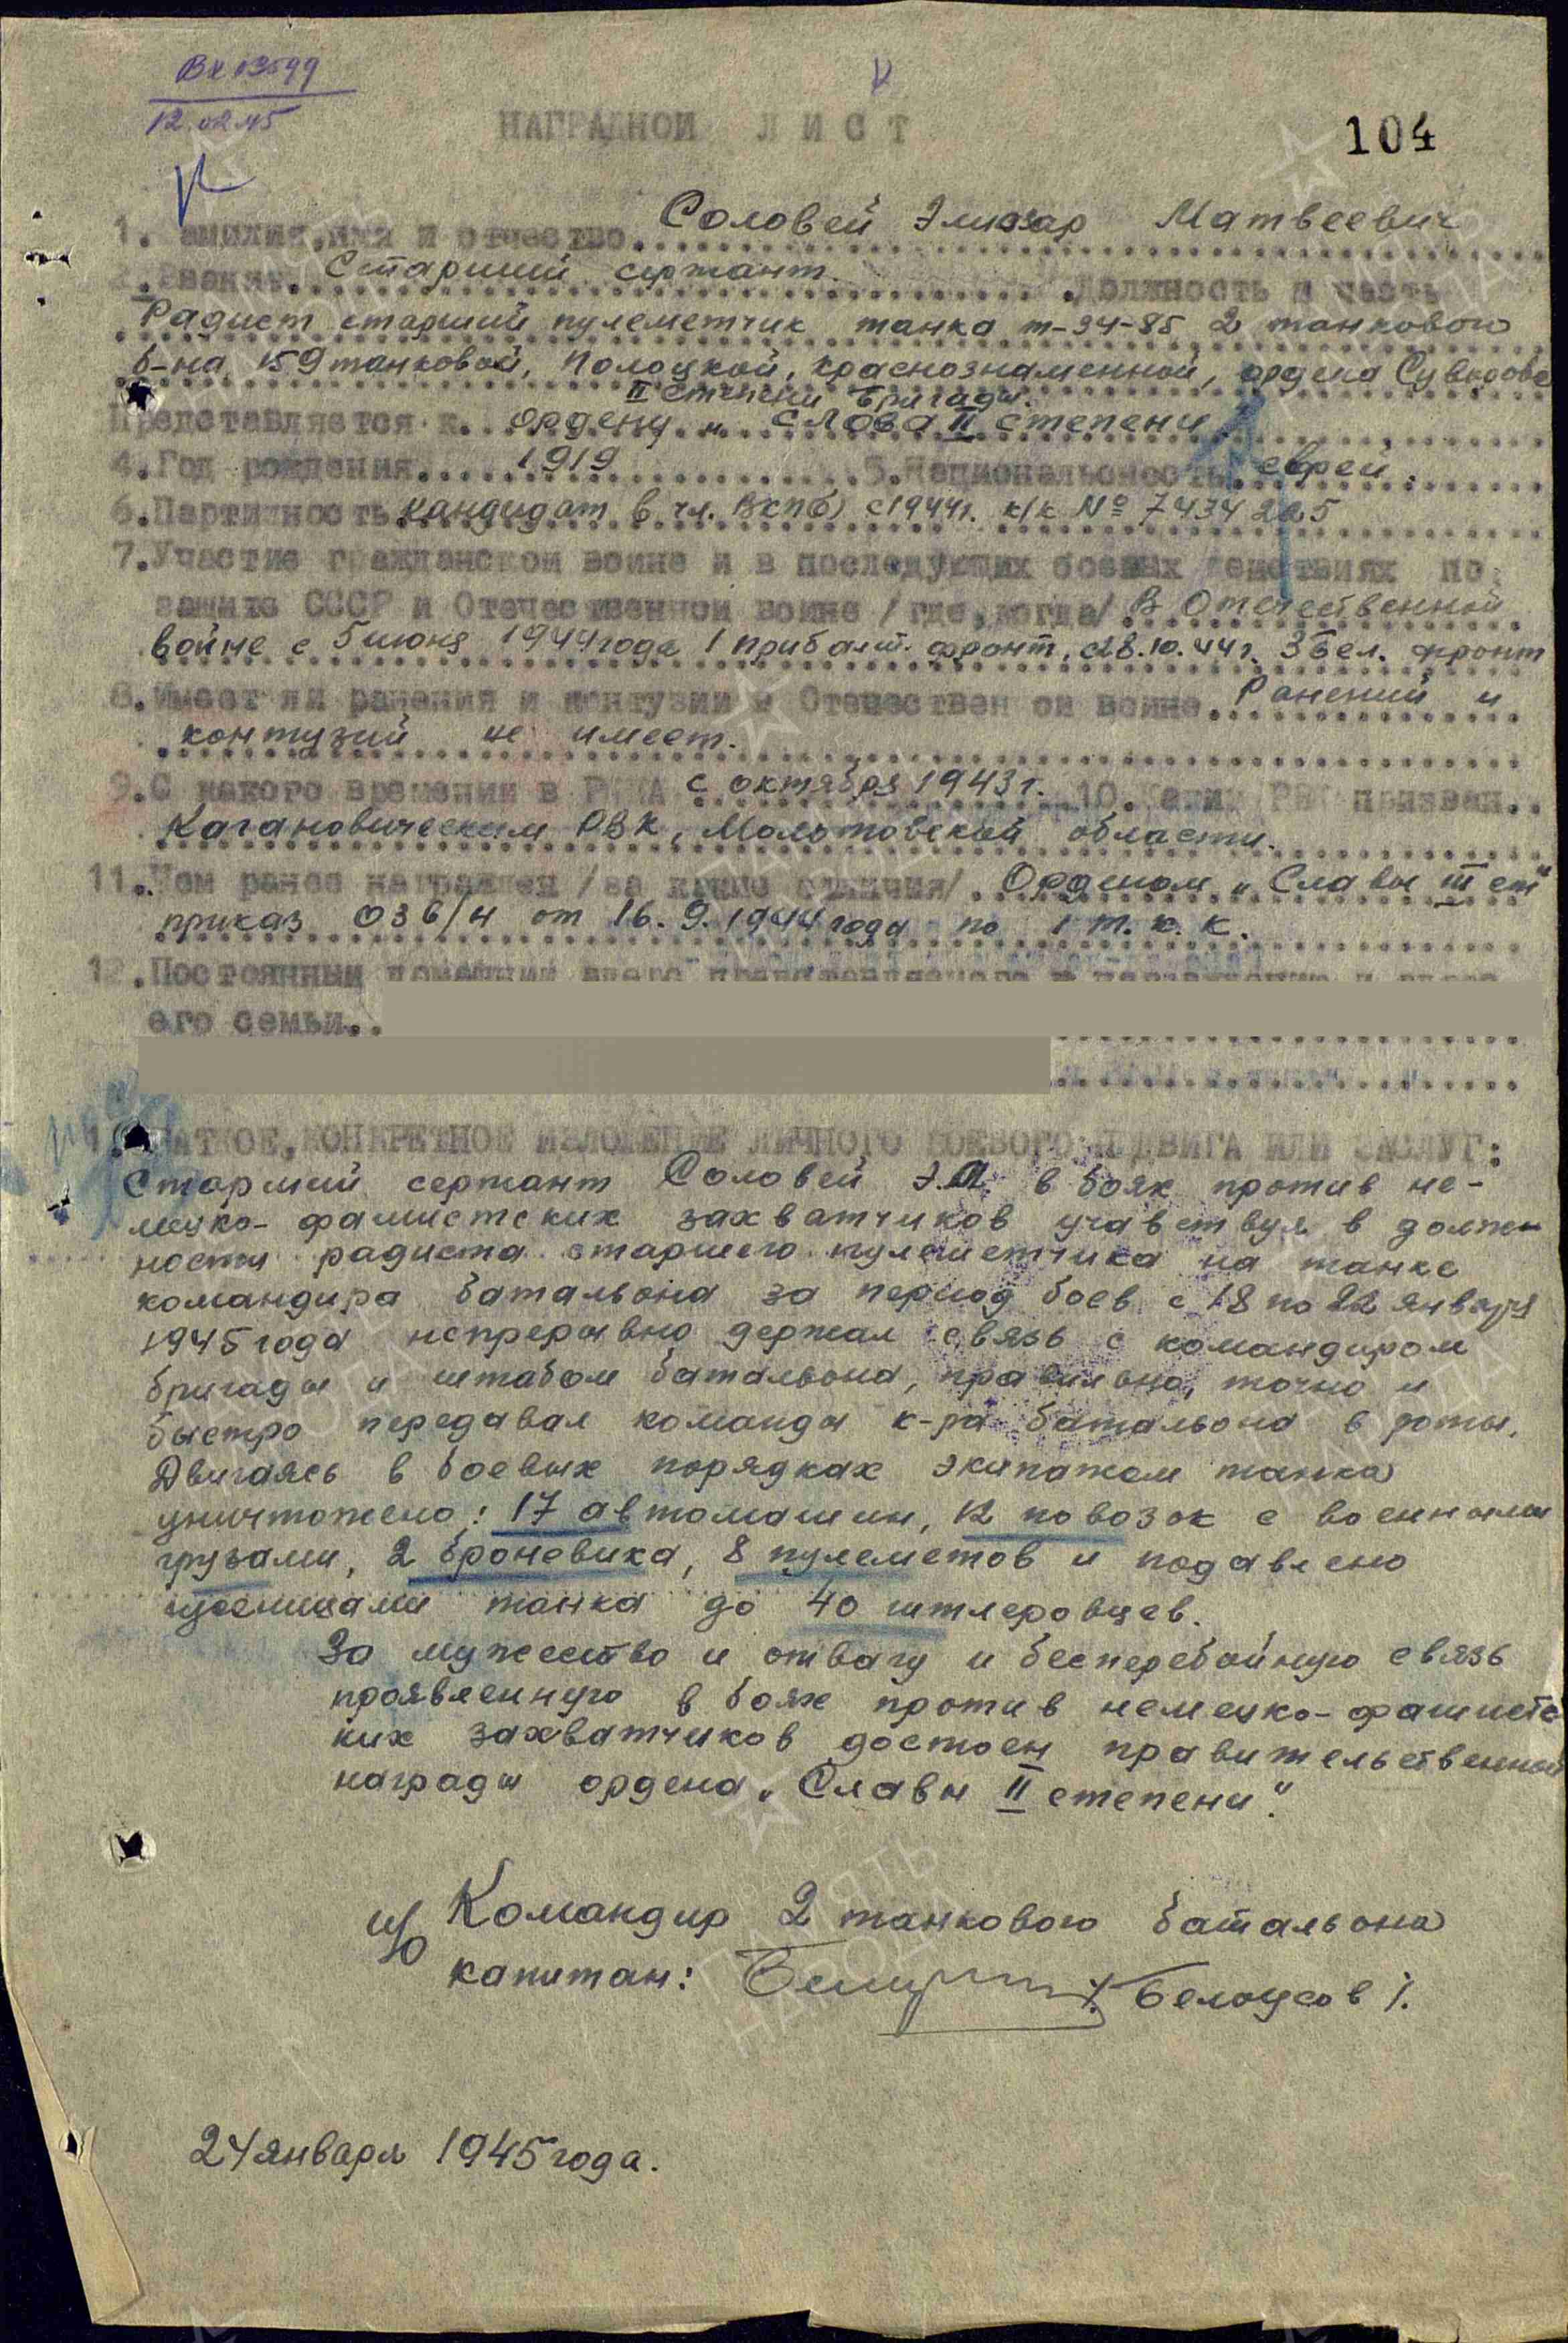 Вх 13599
12.02.45
НАГРАДНОЙ ЛИСТ
104
1. Фамилия, имя и отчество Соловей Элиазар Матвеевич
2. Звание Старший сержант. Должность и часть
Радист старший пулеметчик танка Т-34-85 2 танкового
б-на 159 танковой, Полоцкой, Краснознаменной, ордена Суворова
II степени бригады.
Представляется к ордену „Слава II степени
4. Год рождения 1919 5. Национальность еврей.
6. Партийность кандидат в чл. ВКП(б) с 1944г. к/к № 7434225
7. Участие гражданской войне и в последующих боевых действиях по
защите СССР и Отечественной войне /где, когда/ В Отечественной
войне с 5 июня 1944 года 1 прибалт. фронт, с 18.10.44г. 3 бел. фронт
8. Имеет ли ранения и контузии в Отечественной войне Ранений и
контузий не имеет.
9. С какого времени в РККА с октября 1943г. 10. Каким РВК призван
Кагановическим РВК, Молотовской области.
11. Чем ранее награжден /за какие отличия/ Орденом „Славы III ст"
приказ 036/н от 16.9.1944 года по 1 т.к.к.
12. Постоянный домашний адрес представляемого к награждению и адрес
его семьи
КРАТКОЕ, КОНКРЕТНОЕ ИЗЛОЖЕНИЕ ЛИЧНОГО БОЕВОГО ПОДВИГА ИЛИ ЗАСЛУГ:
Старший сержант Соловей Э.М. в боях против не-
мецко-фашистских захватчиков участвуя в долж-
ности радиста старшего пулеметчика на танке
командира батальона за период боев с 18 по 22 января
1945 года непрерывно держал связь с командиром
бригады и штабом батальона, правильно, точно и
быстро передавал команды к-ра батальона в роты.
Двигаясь в боевых порядках экипажем танка
уничтожено: 17 автомашин, 12 повозок с военными
грузами, 2 броневика, 8 пулеметов и подавлено
гусеницами танка до 40 гитлеровцев.
За мужество и отвагу и бесперебойную связь
проявленную в боях против немецко-фашистс
ких захватчиков достоен правительственной
награды ордена „Славы II степени".
и/о Командир 2 танкового батальона
капитан: /Белоусов/.
24 января 1945 года.